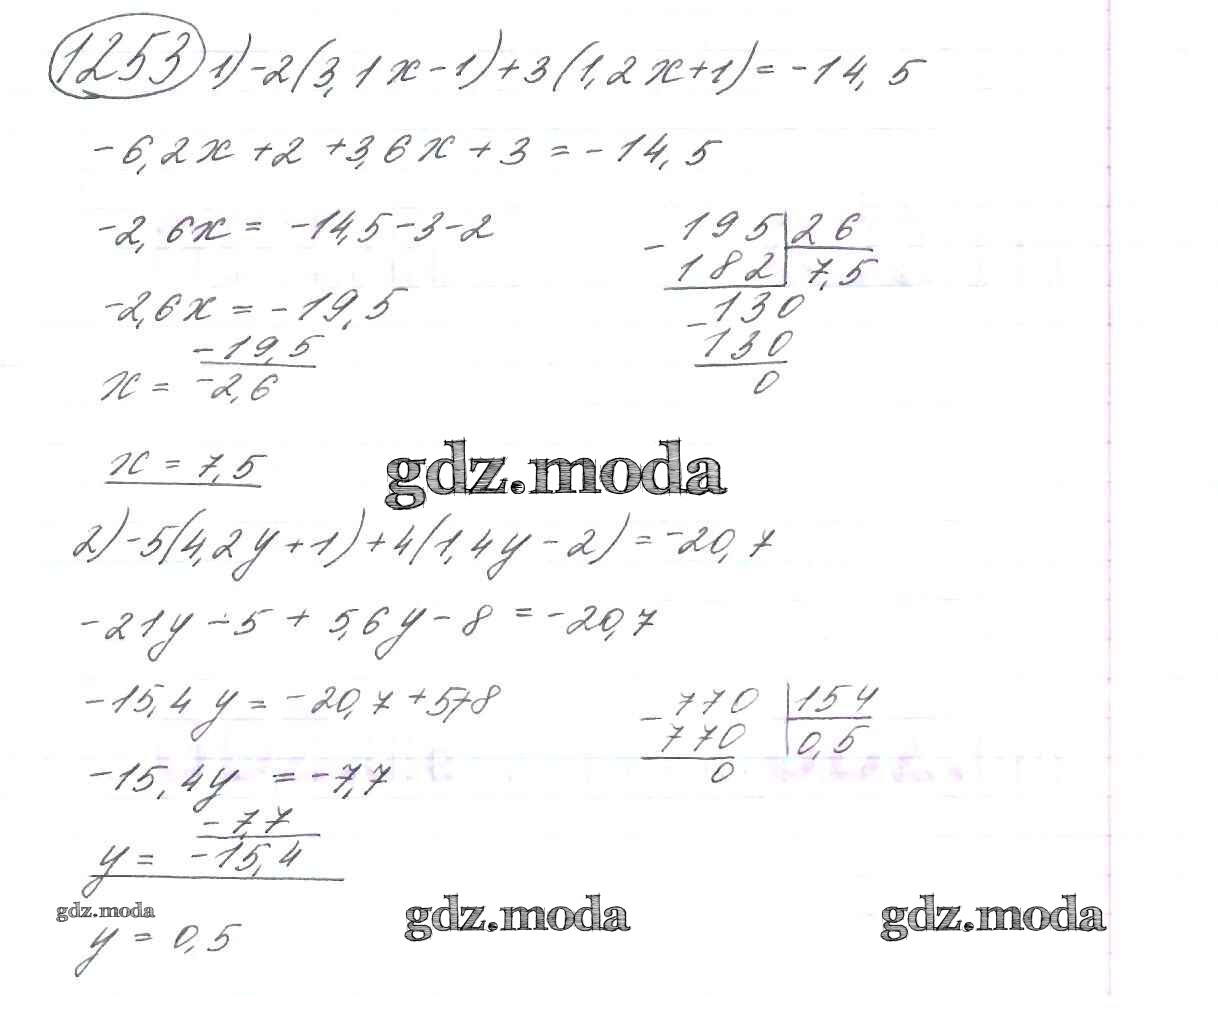 1253 1) -2(3,1x-1)+3(1,2x+1)=-14,5
-6,2x+2+3,6x+3=-14,5
-2,6x=-14,5-3-2
-2,6x=-19,5
x= -19,5
-2,6
x=7,5
- 195 26
182 7,5
- 130
130
0
gdz.moda
2) -5(4,2y+1)+4(1,4y-2)=-20,7
-21y-5+5,6y-8=-20,7
-15,4y=-20,7+5+8
-15,4y=-7,7
y= -7,7
-15,4
y=0,5
- 770 154
770 0,5
0
gdz.moda
gdz.moda
gdz.moda